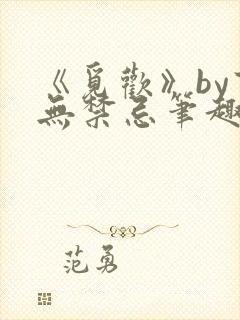 《覓歡》by
無禁忌筆趣
范勇